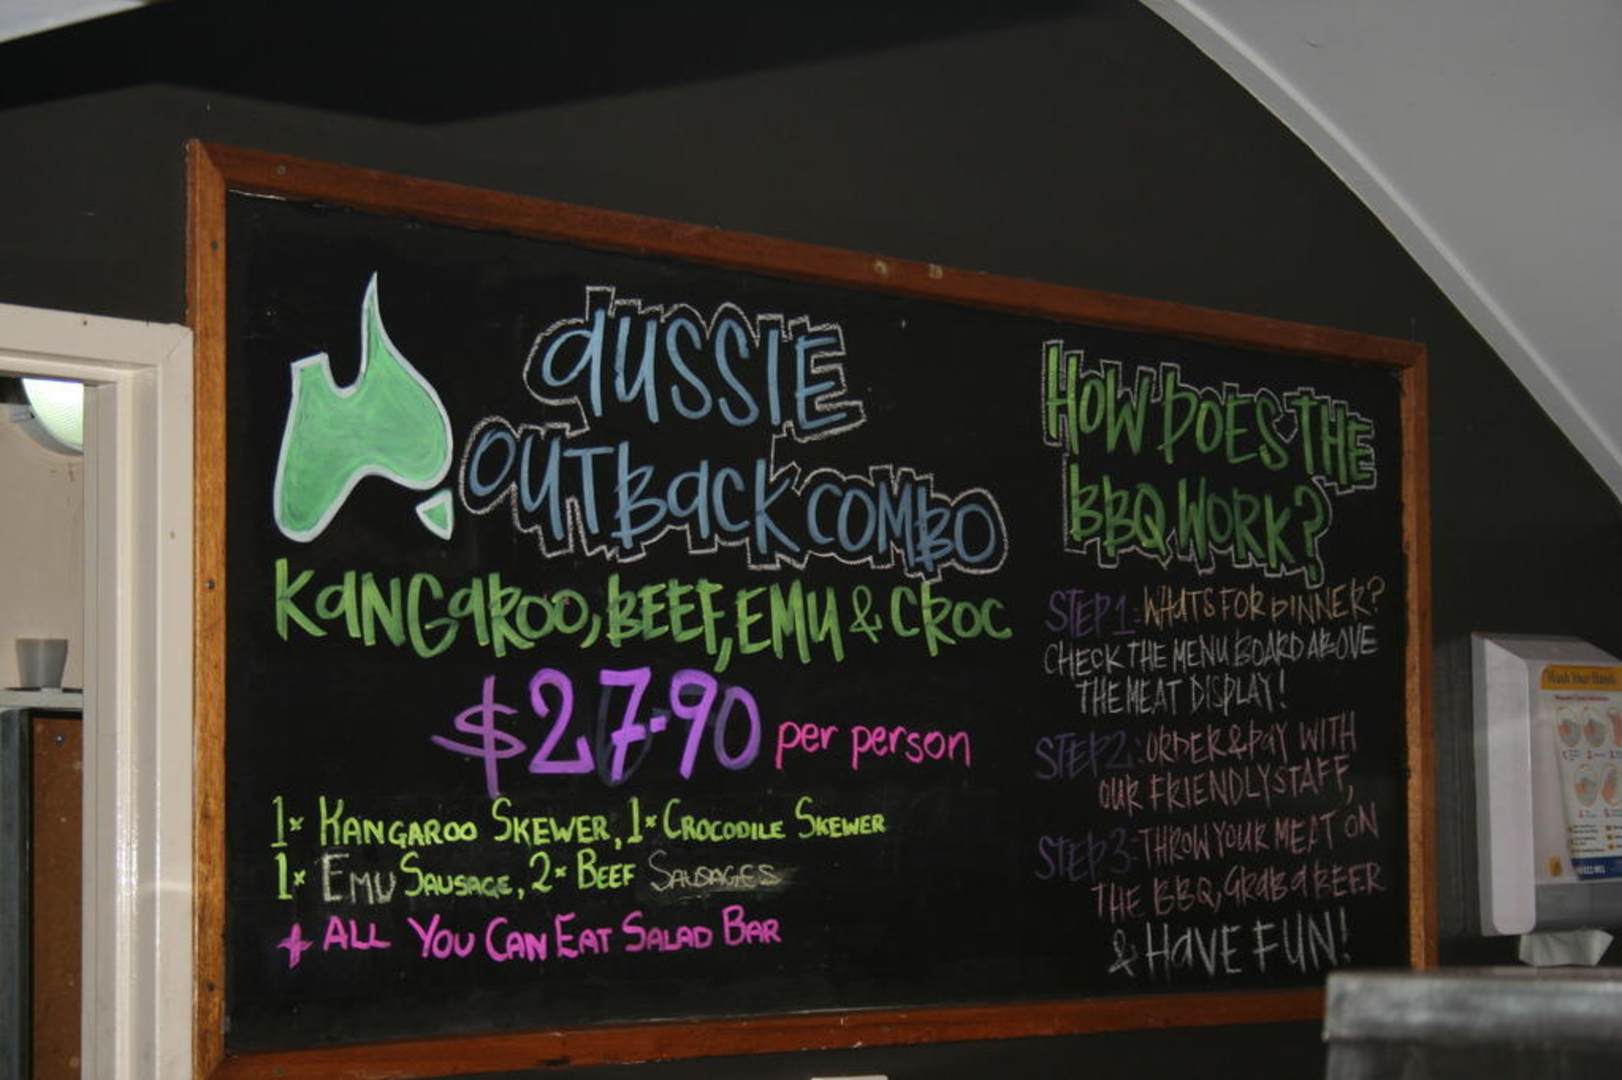 AUSSIE
OUTBACK COMBO
KANGAROO, BEEF, EMU & CROC
$27.90 per person
1x KANGAROO SKEWER, 1x CROCODILE SKEWER
1x EMU SAUSAGE, 2x BEEF SAUSAGES
+ ALL YOU CAN EAT SALAD BAR
HOW DOES THE
BBQ WORK?
STEP 1: WHATS FOR DINNER?
CHECK THE MENU BOARD ABOVE
THE MEAT DISPLAY!
STEP 2: ORDER & PAY WITH
OUR FRIENDLY STAFF,
STEP 3: THROW YOUR MEAT ON
THE BBQ, GRAB A BEER
& HAVE FUN!
Wash Your Hands